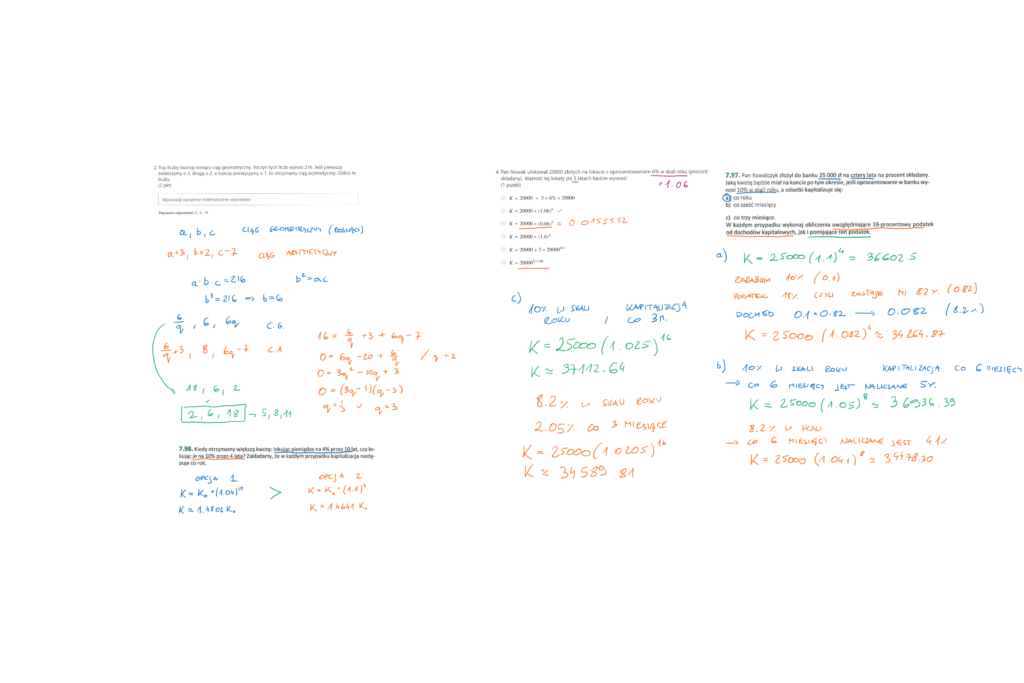 2. Trzy liczby tworzą rosnący ciąg geometryczny. Iloczyn tych liczb wynosi 216. Jeśli pierwszą
zwiększymy o 3, drugą o 2, a trzecią zmniejszymy o 7, to otrzymamy ciąg arytmetyczny. Oblicz te
liczby.
(2 pkt)
Wprowadź wyrażenie matematyczne odpowiedzi
Poprawne odpowiedzi: 2, 6, 18
a, b, c CIĄG GEOMETRYCZNY (ROSNĄCY)
a+3, b+2, c-7 CIĄG ARYTMETYCZNY
a·b·c=216 b²=ac
b³=216 => b=6
6/q, 6, 6q C.G.
6/q+3, 8, 6q-7 C.A.
18, 6, 2
2, 6, 18 → 5, 8, 11
16 = 6/q +3 + 6q -7
0 = 6q -20 + 6/q / q ÷2
0 = 3q² -10q + 3
0 = (3q-1)(q-3)
q = 1/3 ∨ q=3
7.98. Kiedy otrzymamy większą kwotę: lokując pieniądze na 4% przez 10 lat, czy lo-
kując je na 10% przez 4 lata? Zakładamy, że w każdym przypadku kapitalizacja nastę-
puje co rok.
OPCJA 1
K = K₀ * (1.04)¹⁰
K ≈ 1.4802 K₀
>
OPCJA 2
K = K₀ * (1.1)⁴
K = 1.4641 K₀
4. Pan Nowak ulokował 20000 złotych na lokacie z oprocentowaniem 6% w skali roku (procent
składany). Wartość tej lokaty po 5 latach będzie wynosić:
(1 punkt)
*1.06
K = 20000 + 5 × 6% × 20000
K = 20000 × (1.06)⁵ ✓
K = 20000 × (0.06)⁵ = 0.0155552
K = 20000 × (1.6)⁵
K = 20000 + 5 × 20000
K = 20000
c)
10% W SKALI ROKU / KAPITALIZACJA CO 3 M.
K = 25000 (1.025)¹⁶
K ≈ 37112.64
8.2% W SKALI ROKU
2.05% CO 3 MIESIĄCE
K = 25000 (1.0205)¹⁶
K ≈ 34589.81
7.97. Pan Kowalczyk złożył do banku 25 000 zł na cztery lata na procent składany.
Jaką kwotę będzie miał na koncie po tym okresie, jeśli oprocentowanie w banku wy-
nosi 10% w skali roku, a odsetki kapitalizuje się:
a) co roku
b) co sześć miesięcy
c) co trzy miesiące.
W każdym przypadku wykonaj obliczenia uwzględniające 18-procentowy podatek
od dochodów kapitałowych, jak i pomijające ten podatek.
a) K = 25000 (1.1)⁴ = 36602.5
ZARABIAM 10% (0.1)
PODATEK 18% CZYLI ZOSTAJE MI 82% (0.82)
DOCHÓD 0.1 * 0.82 → 0.082 (8.2%)
K = 25000 (1.082)⁴ ≈ 34264.87
b) 10% W SKALI ROKU KAPITALIZACJA CO 6 MIESIĘCY
→ CO 6 MIESIĘCY JEST NALICZANE 5%
K = 25000 (1.05)⁸ ≈ 36936.39
8.2% W SKALI
→ CO 6 MIESIĘCI NALICZANE JEST 4.1%
K = 25000 (1.041)⁸ ≈ 34478.30